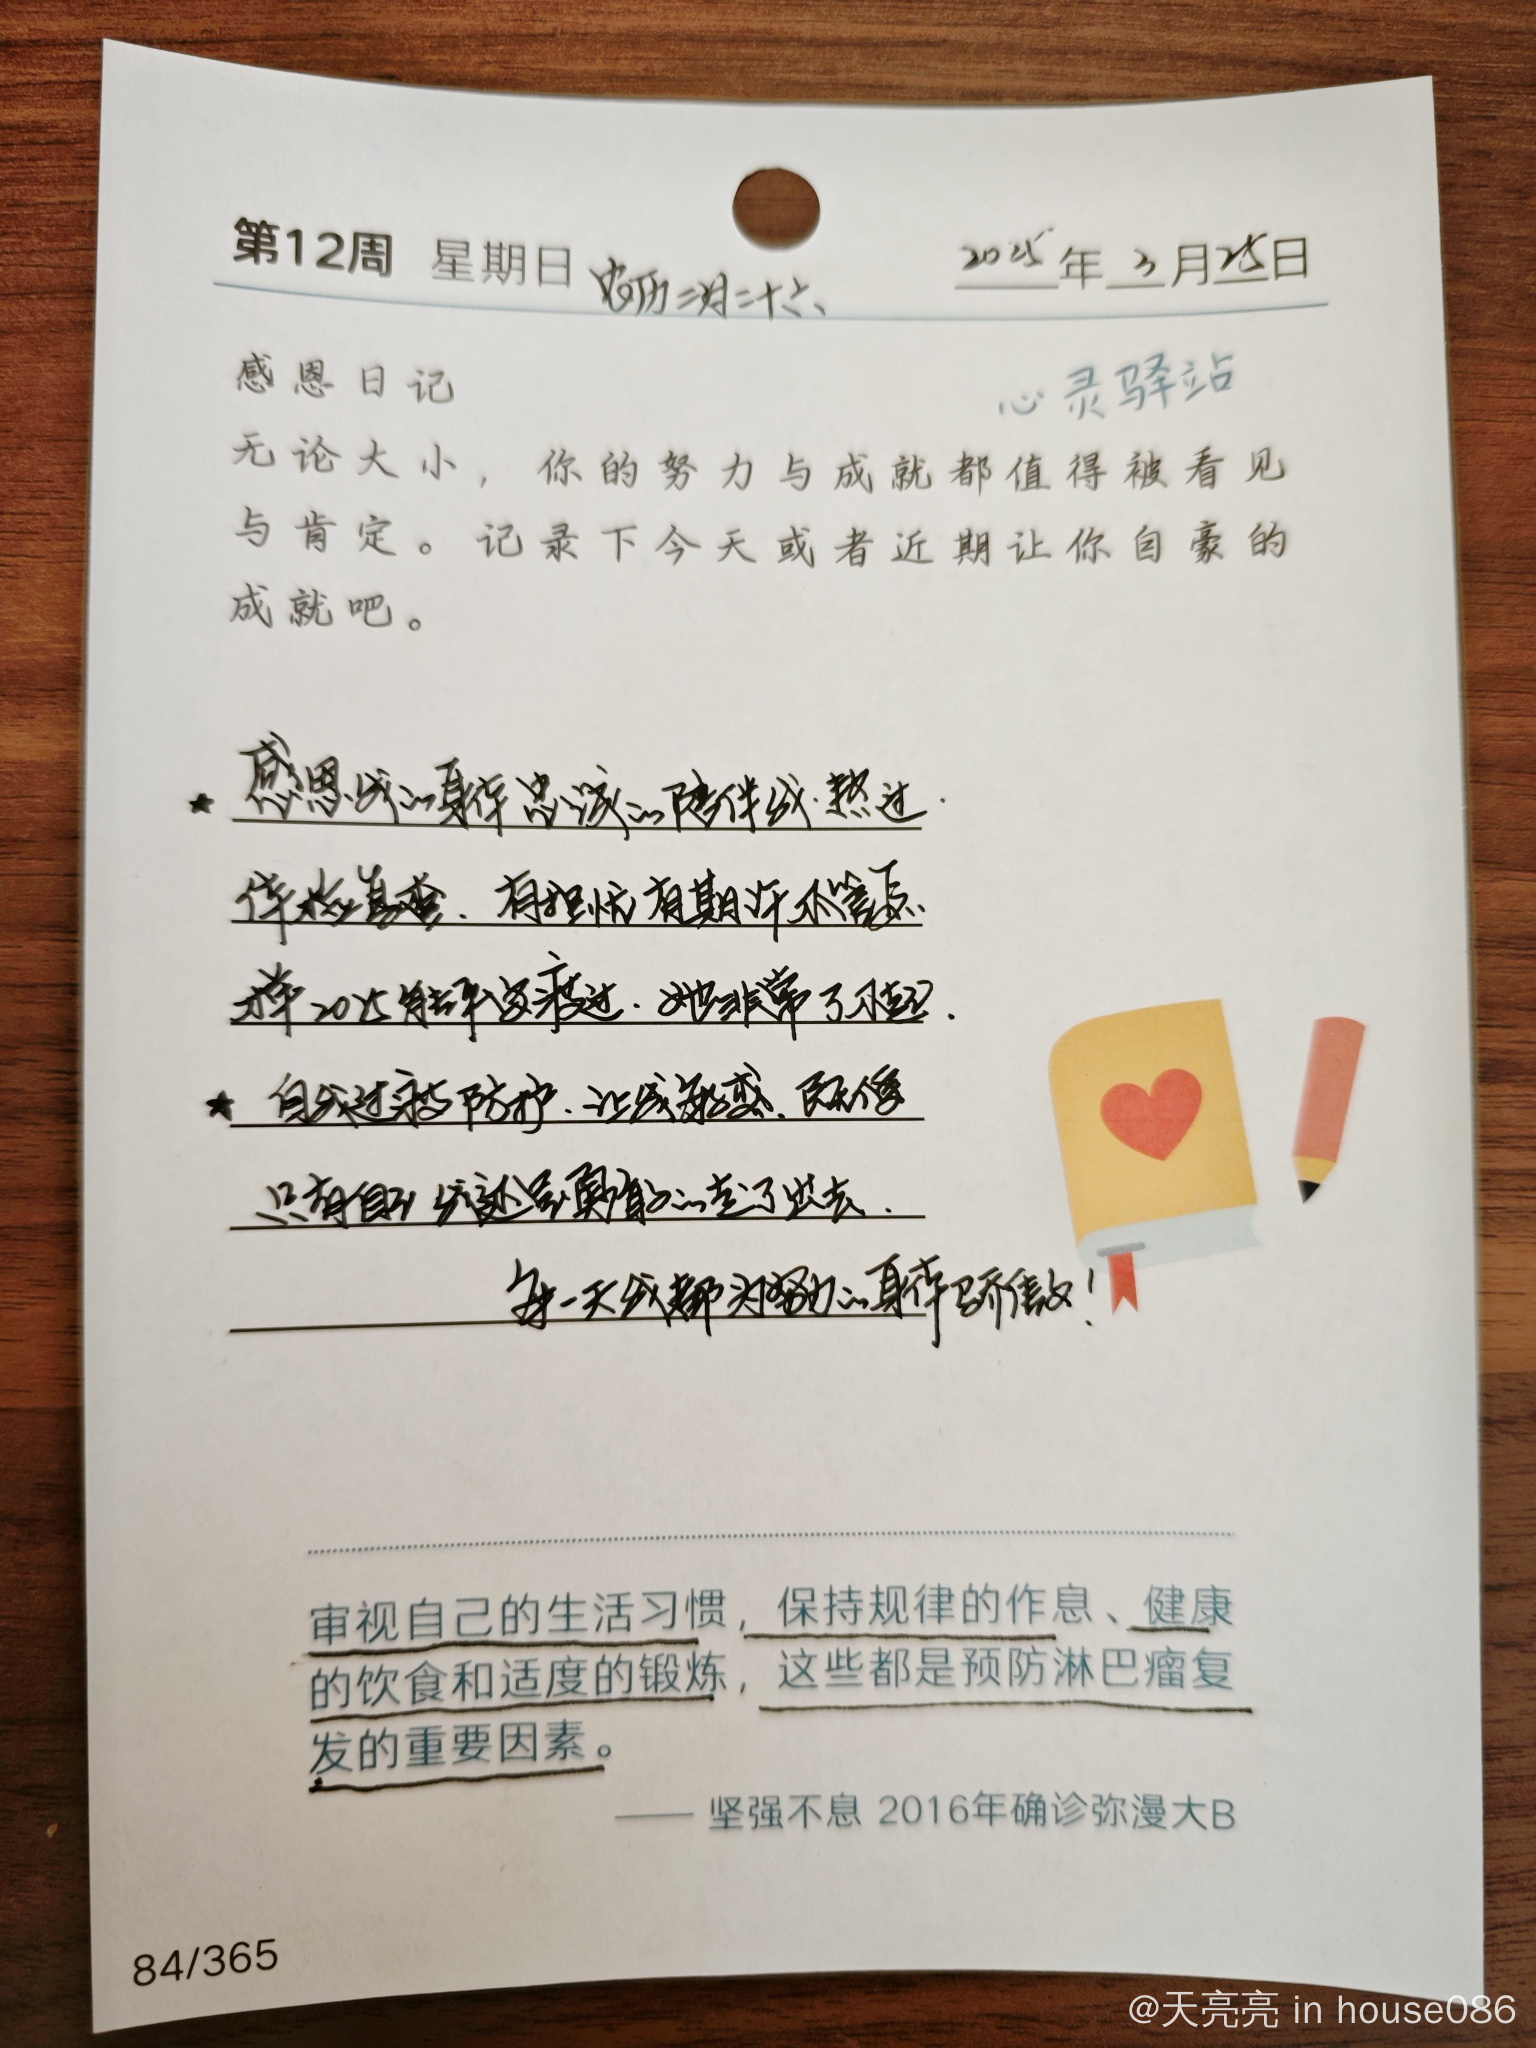 第12周 星期日 农历二月二十六 2025年3月25日
感恩日记
心灵驿站
无论大小，你的努力与成就都值得被看见
与肯定。记录下今天或者近期让你自豪的
成就吧。
★ 感恩我的身体忠诚的陪伴我.熬过.
体检复查.有担忧有期许不管怎
样2025年渡过.她非常了不起.
★ 自我过度防护.让我改变.
只有自己走了出去.
每一天我都为努力的身体骄傲!
审视自己的生活习惯，保持规律的作息、健康
的饮食和适度的锻炼，这些都是预防淋巴瘤复
发的重要因素。
—— 坚强不息 2016年确诊弥漫大B
84/365
@天亮亮 in house086